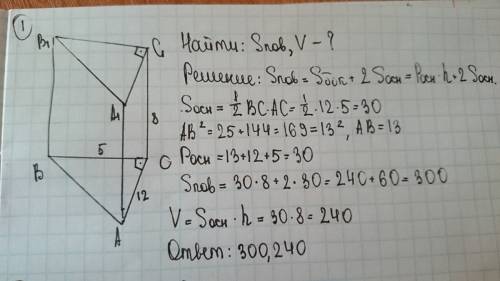 1
B₁
C₁
A₁
8
5
B
C
12
A
Найти: Sпов, V - ?
Решение: Sпов = Sбок + 2 Sосн = Pосн · h + 2 Sосн.
Sосн = 1/2 BC · AC = 1/2 · 12 · 5 = 30
AB² = 25 + 144 = 169 = 13², AB = 13
Pосн = 13 + 12 + 5 = 30
Sпов = 30 · 8 + 2 · 30 = 240 + 60 = 300
V = Sосн · h = 30 · 8 = 240
Ответ: 300, 240